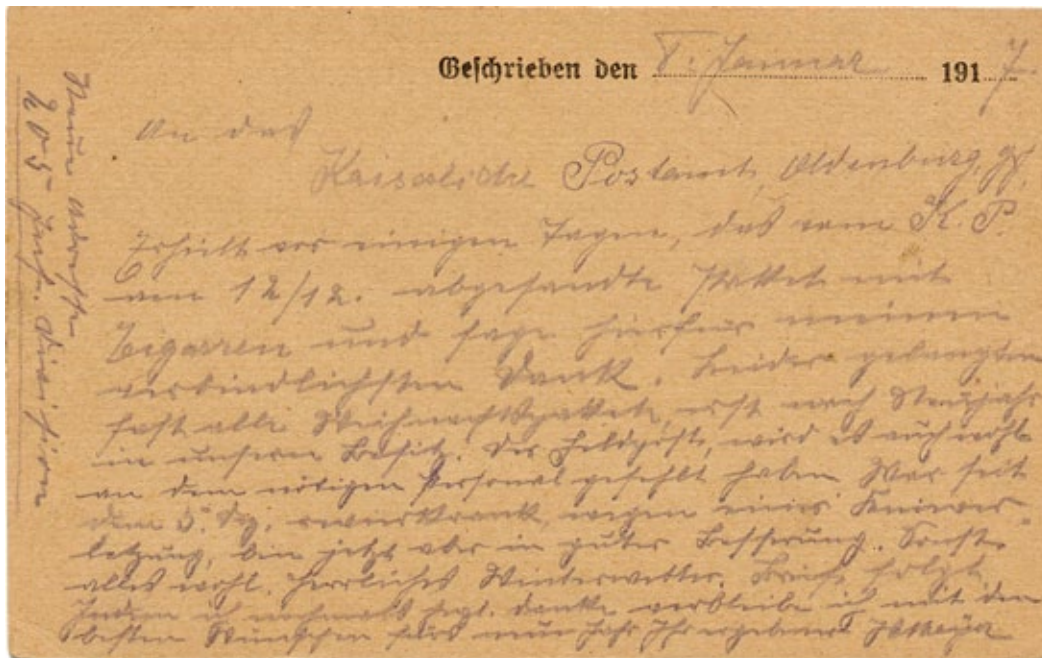 Geschrieben den 8. Januar 1917.
An das
Kaiserliche Postamt, Oldenburg, Gr.
Erhielt vor einigen Tagen, das vom K. P.
am 12/12. abgesandte Paket mit
Zigarren und sage hierfür meinen
verbindlichsten Dank. Leider gelangten
fast alle Weihnachtspakete, erst nach Neujahr
in unsern Besitz. Der Feldpost, wird es auch wohl
an dem nötigen Personal gefehlt haben War seit
dem 5. Dez. revierkrank, wegen einer Kniever-
letzung, bin jetzt aber in guter Besserung. Sonst
alles wohl. Herrliches Winterwetter. Brief, folgt.
Indem ich nochmals bestens danke verbleibe ich mit den
besten Wünschen fürs neue Jahr Ihr ergebener Meyer
Neue Adresse
205 Inf. Division